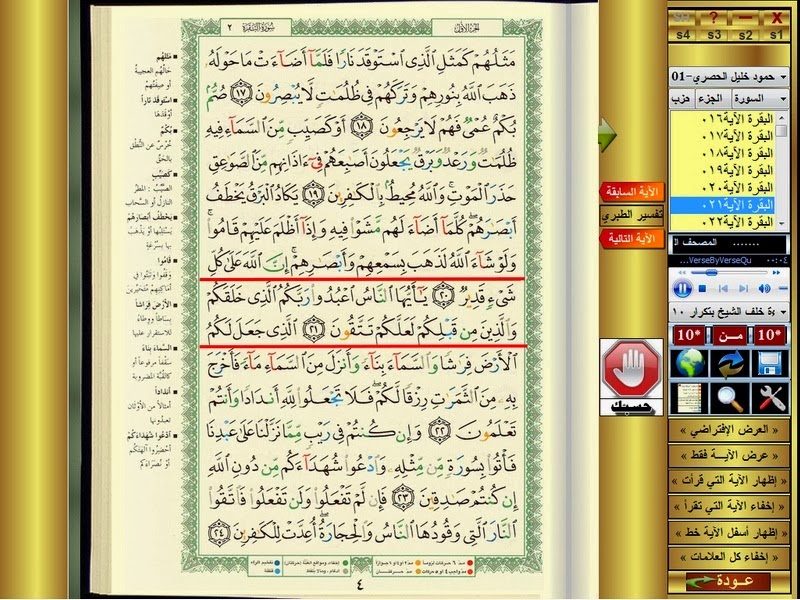 سورة البقرة ٢
الجزء الأول
مَثَلُهُمْ كَمَثَلِ ٱلَّذِى ٱسْتَوْقَدَ نَارًا فَلَمَّآ أَضَآءَتْ مَا حَوْلَهُۥ
ذَهَبَ ٱللَّهُ بِنُورِهِمْ وَتَرَكَهُمْ فِى ظُلُمَٰتٍ لَّا يُبْصِرُونَ ١٧ صُمٌّۢ
بُكْمٌ عُمْىٌ فَهُمْ لَا يَرْجِعُونَ ١٨ أَوْ كَصَيِّبٍ مِّنَ ٱلسَّمَآءِ فِيهِ
ظُلُمَٰتٌ وَرَعْدٌ وَبَرْقٌ يَجْعَلُونَ أَصَٰبِعَهُمْ فِىٓ ءَاذَانِهِم مِّنَ ٱلصَّوَٰعِقِ
حَذَرَ ٱلْمَوْتِ ۚ وَٱللَّهُ مُحِيطٌۢ بِٱلْكَٰفِرِينَ ١٩ يَكَادُ ٱلْبَرْقُ يَخْطَفُ
أَبْصَٰرَهُمْ ۖ كُلَّمَآ أَضَآءَ لَهُم مَّشَوْا۟ فِيهِ وَإِذَآ أَظْلَمَ عَلَيْهِمْ قَامُوا۟ ۚ
وَلَوْ شَآءَ ٱللَّهُ لَذَهَبَ بِسَمْعِهِمْ وَأَبْصَٰرِهِمْ ۚ إِنَّ ٱللَّهَ عَلَىٰ كُلِّ
شَىْءٍ قَدِيرٌ ٢٠ يَٰٓأَيُّهَا ٱلنَّاسُ ٱعْبُدُوا۟ رَبَّكُمُ ٱلَّذِى خَلَقَكُمْ
وَٱلَّذِينَ مِن قَبْلِكُمْ لَعَلَّكُمْ تَتَّقُونَ ٢١ ٱلَّذِى جَعَلَ لَكُمُ
ٱلْأَرْضَ فِرَٰشًا وَٱلسَّمَآءَ بِنَآءً وَأَنزَلَ مِنَ ٱلسَّمَآءِ مَآءً فَأَخْرَجَ
بِهِۦ مِنَ ٱلثَّمَرَٰتِ رِزْقًا لَّكُمْ ۖ فَلَا تَجْعَلُوا۟ لِلَّهِ أَندَادًا وَأَنتُمْ
تَعْلَمُونَ ٢٢ وَإِن كُنتُمْ فِى رَيْبٍ مِّمَّا نَزَّلْنَا عَلَىٰ عَبْدِنَا
فَأْتُوا۟ بِسُورَةٍ مِّن مِّثْلِهِۦ وَٱدْعُوا۟ شُهَدَآءَكُم مِّن دُونِ ٱللَّهِ
إِن كُنتُمْ صَٰدِقِينَ ٢٣ فَإِن لَّمْ تَفْعَلُوا۟ وَلَن تَفْعَلُوا۟ فَٱتَّقُوا۟
ٱلنَّارَ ٱلَّتِى وَقُودُهَا ٱلنَّاسُ وَٱلْحِجَارَةُ ۖ أُعِدَّتْ لِلْكَٰفِرِينَ ٢٤
٤
مثلهم
حالهم العجيبة
أو صفتهم
استوقد نارا
أوقدها
بكم
خرس عن النطق
بالحق
كصيب
الصيب: المطر
النازل أو السحاب
يخطف أبصارهم
يستلبها أو يذهب
بها بسرعة
قاموا
وقفوا وثبتوا في
أماكنهم متحيرين
الأرض فراشا
بساطا ووطاء
للاستقرار عليها
السماء بناء
سقفا مرفوعا أو
كالقبة المضروبة
أندادا
أمثالا من الأوثان
تعبدونها
ادعوا شهداءكم
أحضروا آلهتكم
أو نصراءكم
الآية السابقة
تفسير الطبري
الآية التالية
حسبك
? — X
s4 s3 s2 s1
حمود خليل الحصري-01
السورة الجزء حزب
البقرة الآية٠١٦
البقرة الآية٠١٧
البقرة الآية٠١٨
البقرة الآية٠١٩
البقرة الآية٠٢٠
البقرة الآية٠٢١
البقرة الآية٠٢٢
المصحف ال .......
...VerseByVerseQu ٠٠:٠٤
ءة خلف الشيخ بتكرار ١٠
10* مــن 10*
« العرض الإفتراضي »
« عرض الآيــة فقط »
« إظهار الآية التي قرأت »
« إخفاء الآية التي تقرأ »
« إظهار أسفل الآية خط »
« إخفاء كل العلامات »
عــودة